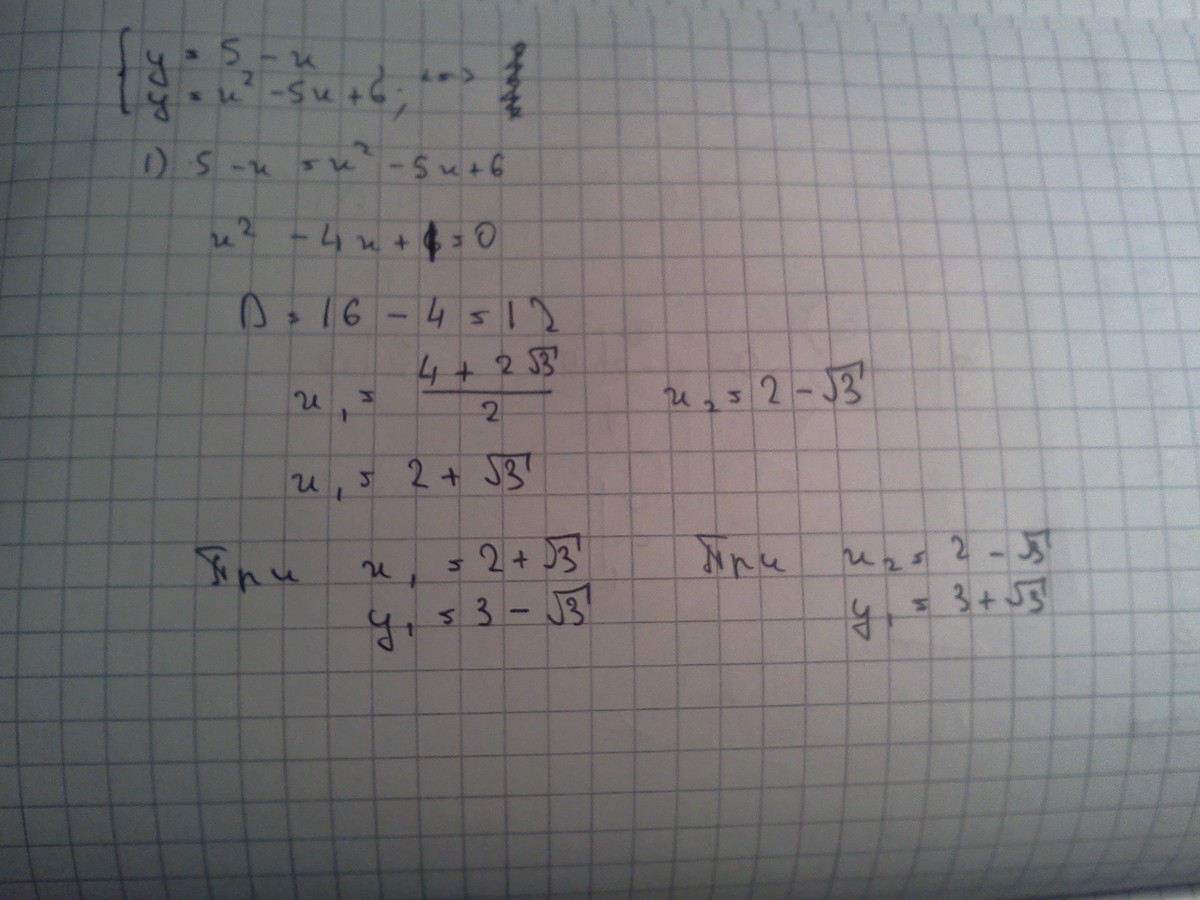 { y = 5 - x
y = x² - 5x + 6; <=>
1) 5 - x = x² - 5x + 6
x² - 4x + 1 = 0
D = 16 - 4 = 12
x₁ = (4 + 2√3)/2 x₂ = 2 - √3
x₁ = 2 + √3
При x₁ = 2 + √3 При x₂ = 2 - √3
y₁ = 3 - √3 y₁ = 3 + √3